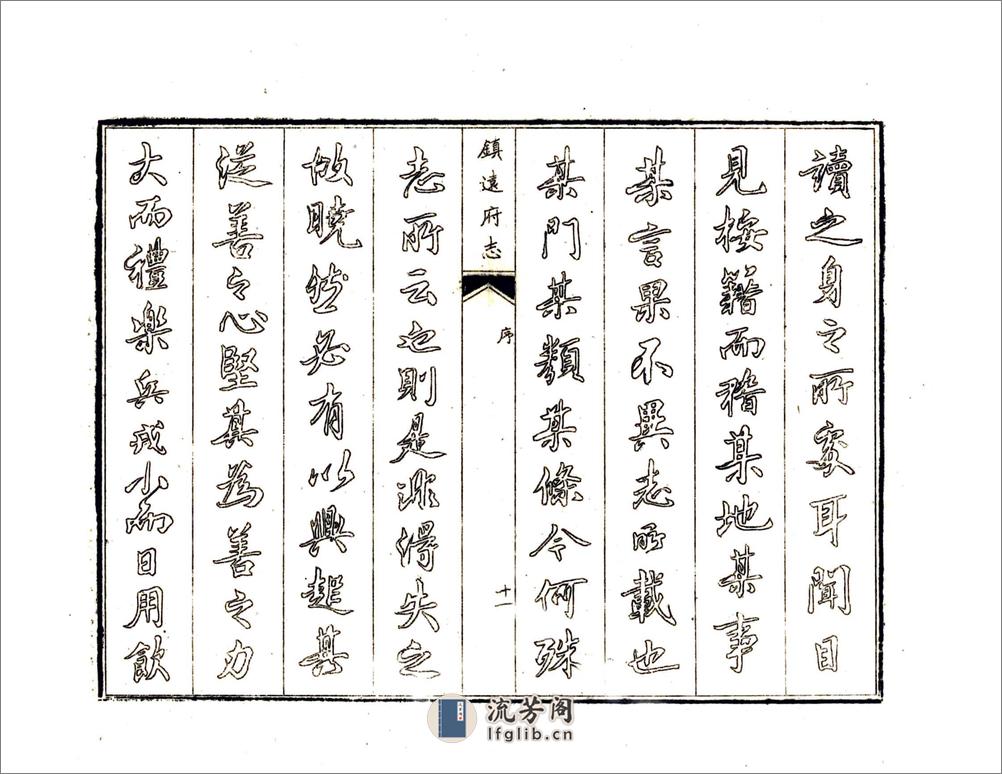 讀之身之所家耳聞目
見按籍而稽某地某事
某言果不異志所載也
某門某類某條今何殊
鎮遠府志
序
十一
志所云也則是非得失之
故曉然必有以興起其
從善之心堅其為善之力
大而禮樂兵戎小而日用飲
流芳阁
lfglib.cn